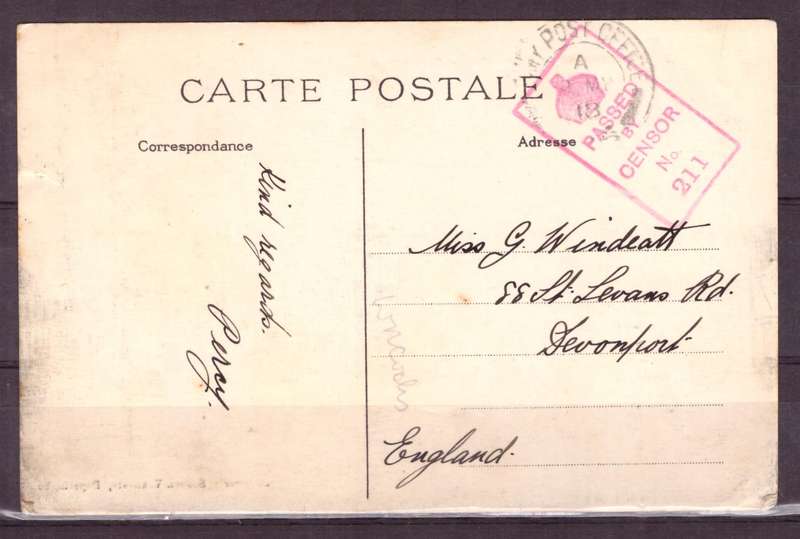 CARTE POSTALE
Correspondance
Adresse
POST OFFICE
A
18
PASSED
BY
CENSOR
No.
211
Kind regards.
Percy.
Miss G. Windeatt
88 St. Levans Rd.
Devonport
England.